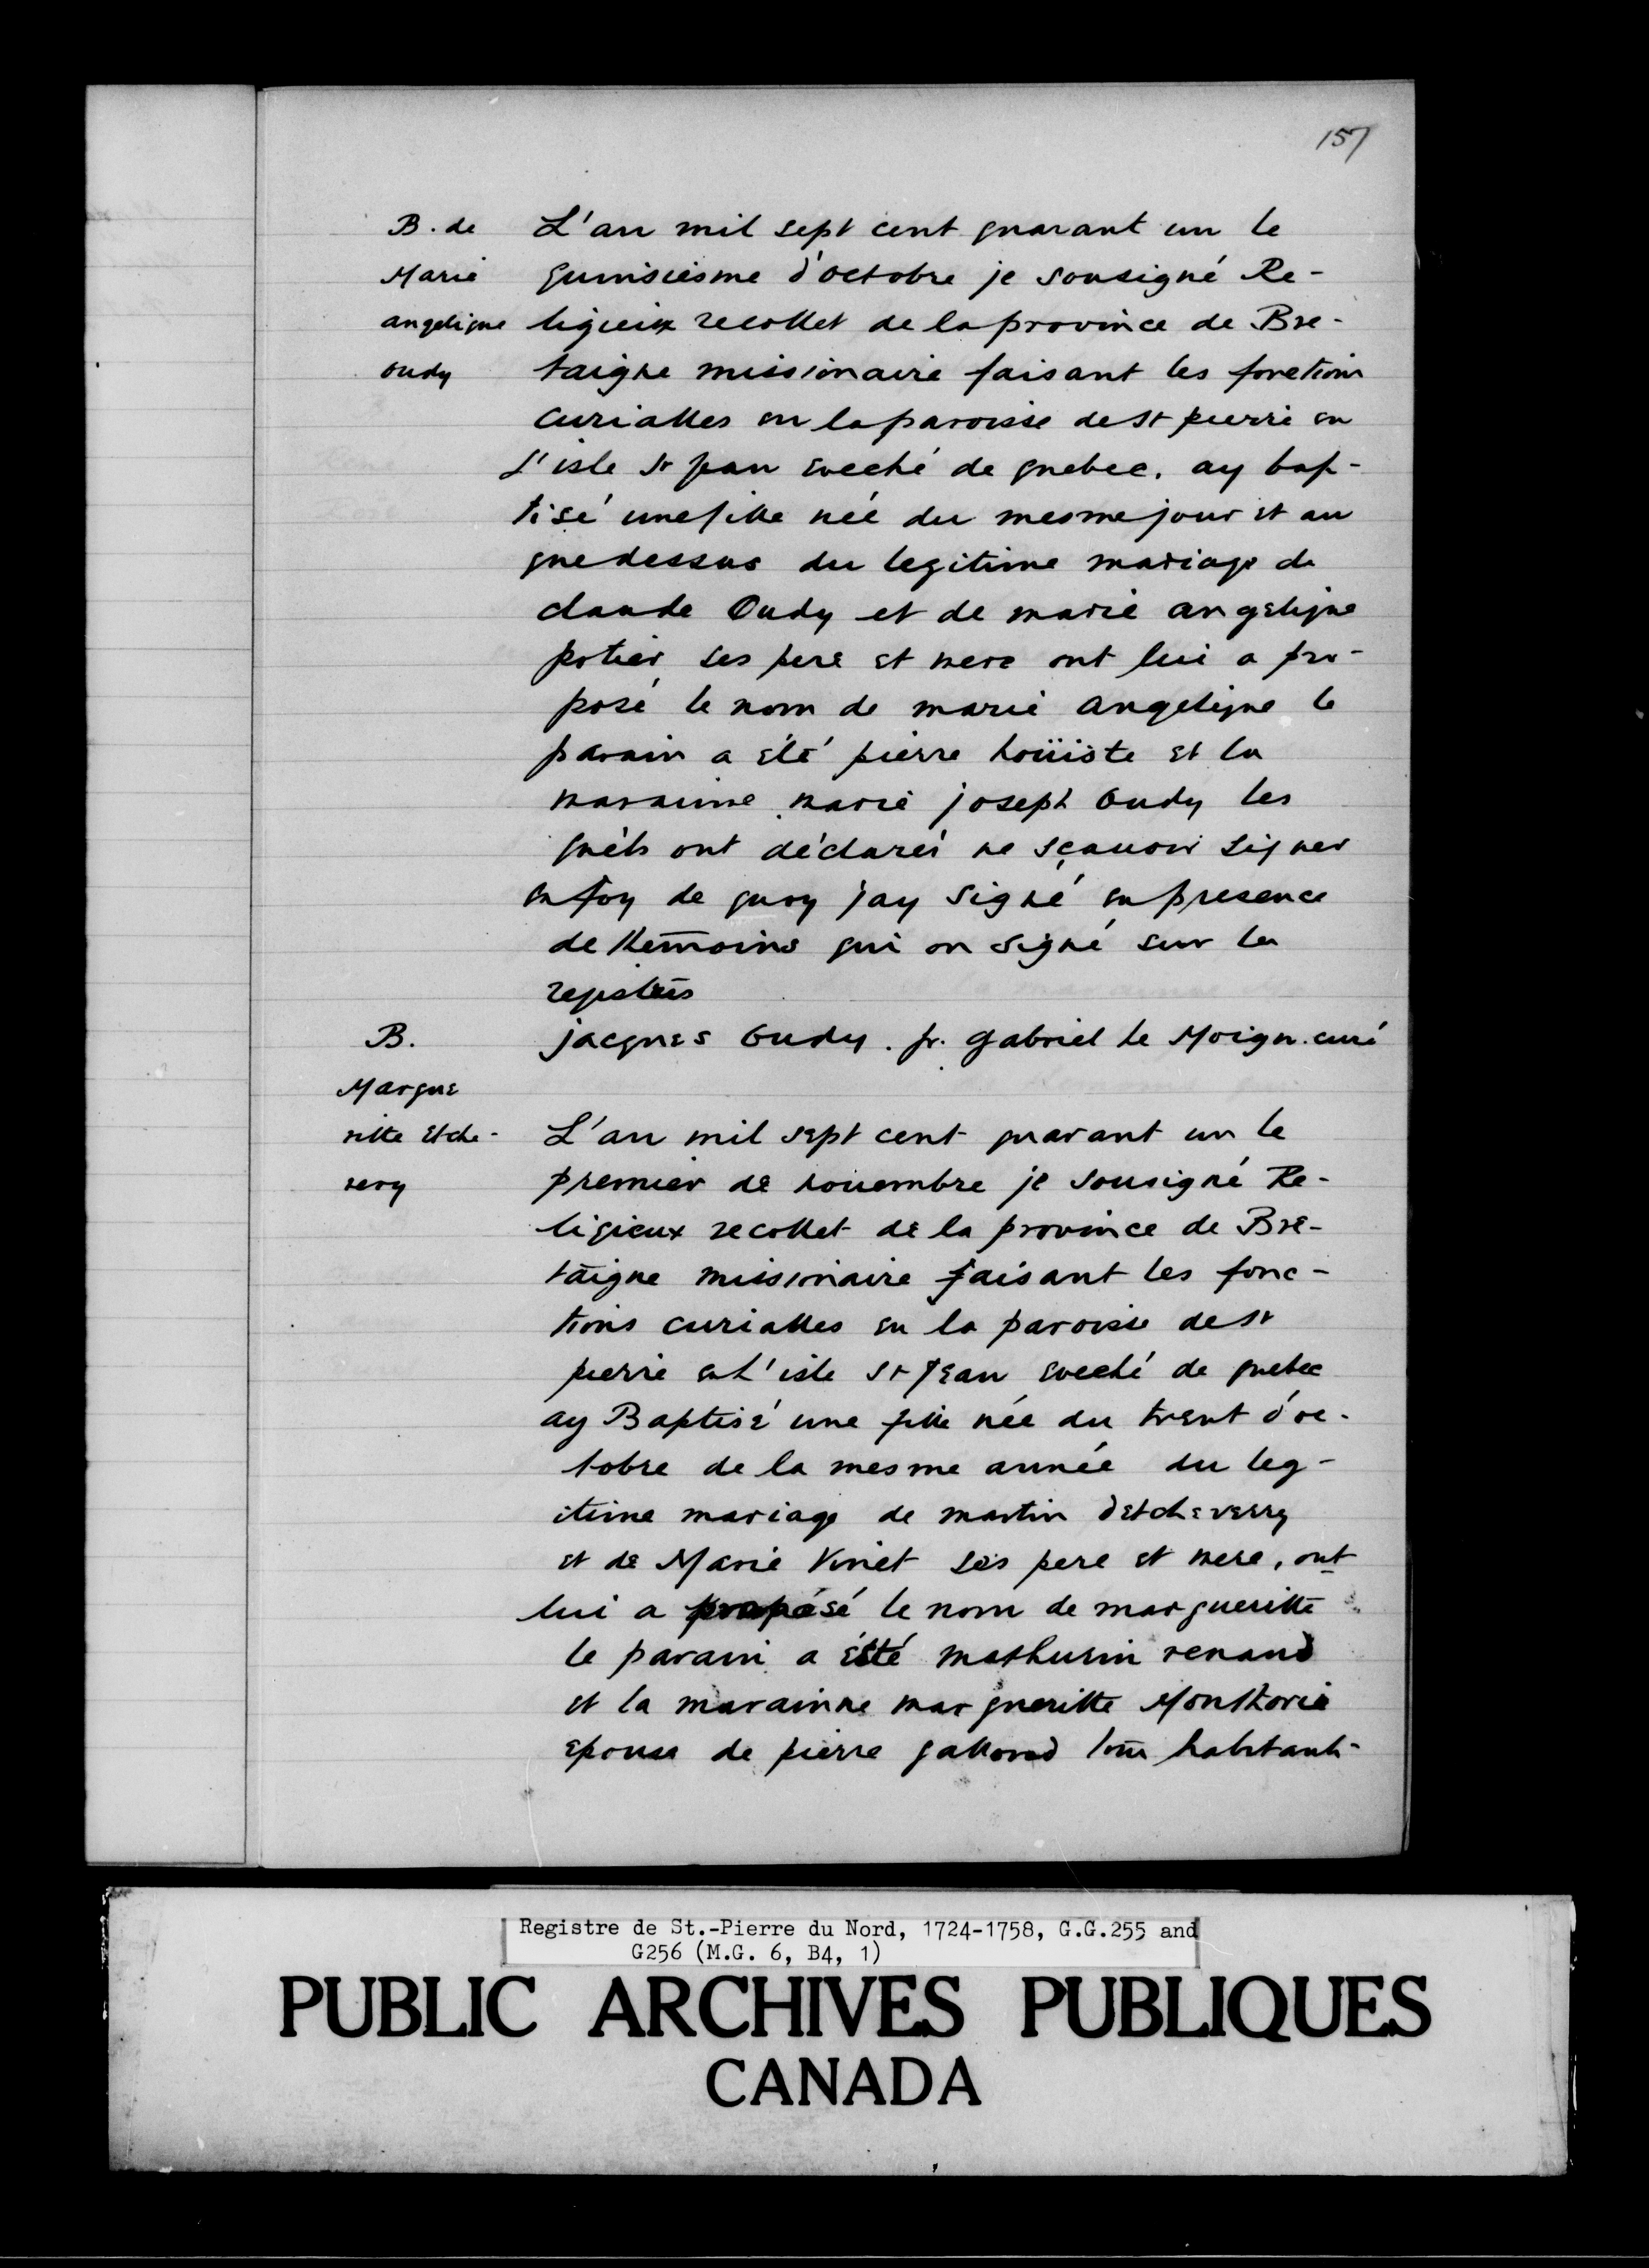 157
B. de
Marie
angelique
oudy
L'an mil sept cent quarant un le
quinsiesme d'octobre je sousigné Re-
ligieux recollet de la province de Bre-
taigne missionaire faisant les fonctions
curialles en la paroisse de st pierre en
L'isle st jean eveché de quebec. ay bap-
tisé une fille née du mesme jour et an
que dessus du legitime mariage de
claude Oudy et de marie angelique
potier ses pere et mere ont lui a pro-
posé le nom de marie angelique le
parain a été pierre hoüiste et la
maraine marie joseph Oudy les
quels ont déclarés ne sçauoir signer
en foy de quoy jay signé en presence
de temoins qui on signé sur les
registres
jacques Oudy . fr. gabriel le Moign. curé
B.
Margue
ritte Etche-
very
L'an mil sept cent quarant un le
premier de nouembre je sousigné Re-
ligieux recollet de la province de Bre-
taigne missionaire faisant les fonc-
tions curialles en la paroisse de st
pierre en L'isle st jean eveché de quebec
ay Baptisé une fille née du trent d'oc-
tobre de la mesme année du leg-
itime mariage de martin detcheverry
et de Marie Viriet ses pere et mere, ont
lui a propósé le nom de margueritte
le parain a été mathurin renaud
et la marainne margueritte Monthorie
epouse de pierre gallond tous habitants-
Registre de St.-Pierre du Nord, 1724-1758, G.G.255 and
G256 (M.G. 6, B4, 1)
PUBLIC ARCHIVES PUBLIQUES
CANADA